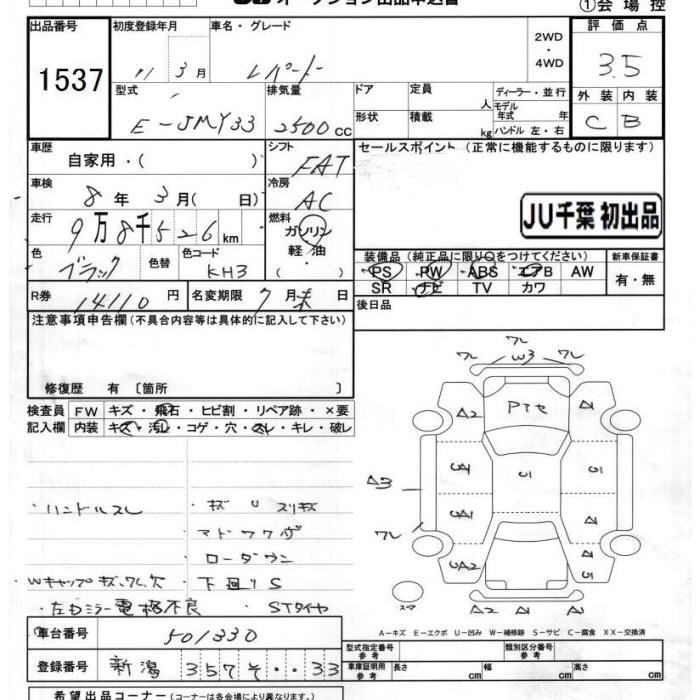 オークション出品申込書
①会場控
出品番号
1537
初度登録年月
11 3月
車名・グレード
レパード
2WD
・
4WD
評価点
3.5
外装 内装
C B
型式
E-JMY33
排気量
2500cc
ドア
形状
定員
人
積載
kg
ディーラー・並行
モデル年式 年
ハンドル 左・右
車歴
自家用・( )
シフト
FAT
車検
8年 3月( 日)
冷房
AC
走行
9万8千526km
燃料
ガソリン
軽油
( )
色
ブラック
色替
色コード
KH3
R券
14110円
名変期限
7月末日
セールスポイント(正常に機能するものに限ります)
JU千葉 初出品
装備品(純正品に限り○をつけてください)
新車保証書
PS PW ABS エアB AW
SR ナビ TV カワ
有・無
後日品
注意事項申告欄(不具合内容等は具体的に記入して下さい)
修復歴 有 〔箇所 〕
検査員記入欄
FW キズ・飛石・ヒビ割・リペア跡・×要
内装 キズ・汚レ・コゲ・穴・スレ・キレ・破レ
・ハンドルスレ
・キズ U スリキズ
マドワクサビ
ローダウン
Wキャップキズ,ワレ,欠
下廻りS
・左右ミラー電格不良
・STタイヤ
ワレ
W3
ワレ
A2
Pテセ
A1
U1
A3
UA1
ワレ
UA2
A1
A2
S1
A2
A1
A2
スペア
A-キズ E-エクボ U-凹み W-補修跡 S-サビ C-腐食 XX-交換済
車台番号
501330
登録番号
新潟 357そ・・33
型式指定番号
参考
類別区分番号
参考
車庫証明用
参考
長さ cm
幅 cm
高さ cm
希望出品コーナー(コーナーは各会場により異なります。)